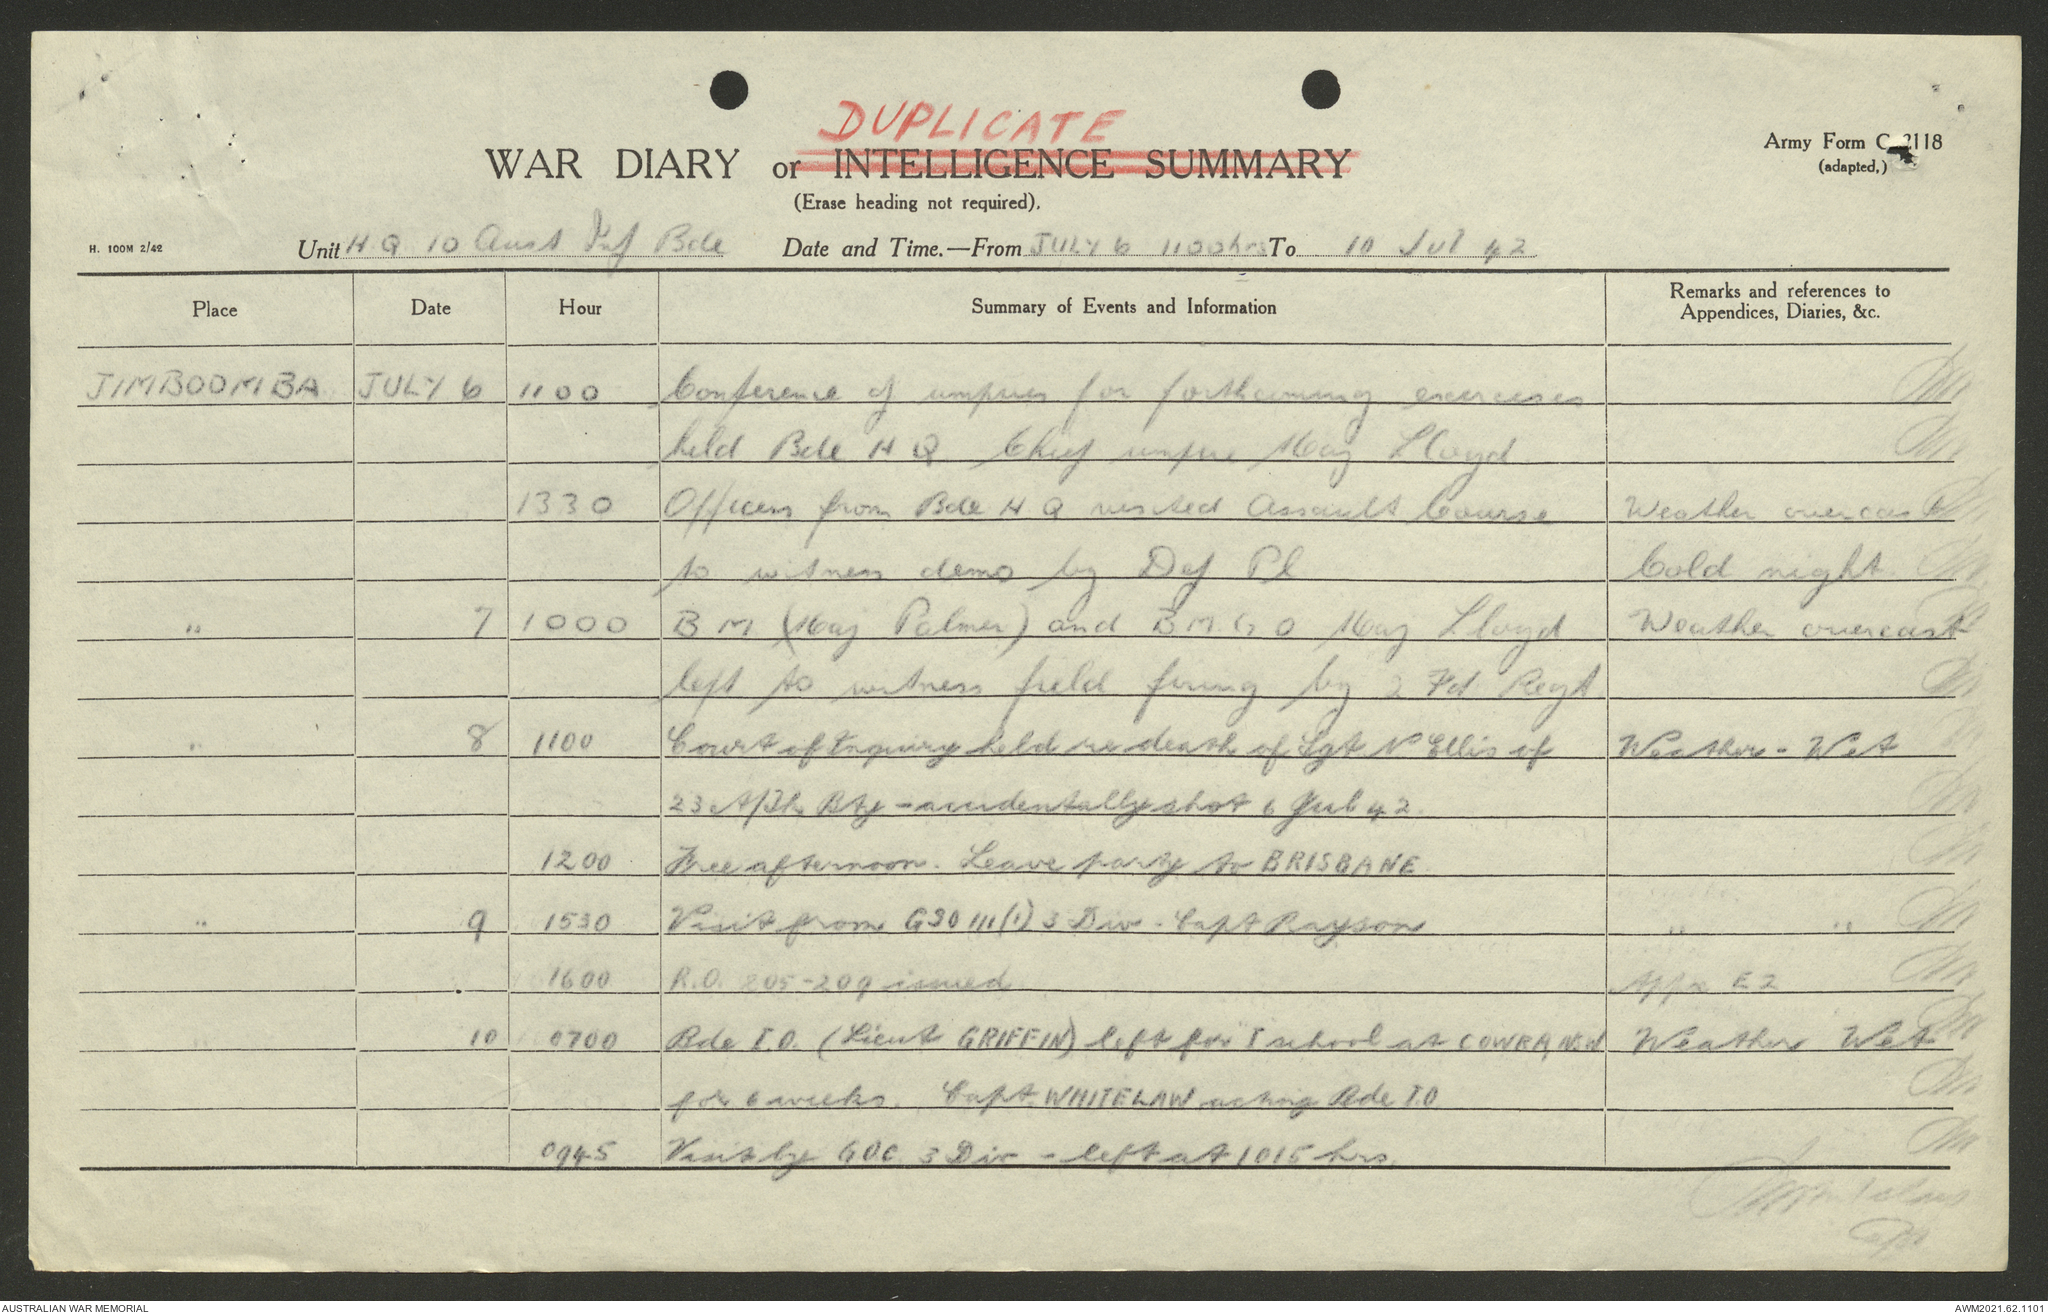 DUPLICATE
WAR DIARY or INTELLIGENCE SUMMARY
(Erase heading not required).
Army Form C 2118
(adapted.)
H. 100M 2/42
Unit H Q 10 Aust Inf Bde Date and Time.—From JULY 6 1100hrs To 10 Jul 42
Place Date Hour Summary of Events and Information Remarks and references to Appendices, Diaries, &c.
JIMBOOMBA JULY 6 1100 Conference of umpires for forthcoming exercises
held Bde H Q Chief umpire Maj Lloyd
1330 Officers from Bde H Q visited Assault Course Weather overcast
to witness demo by Def Pl Cold night
" 7 1000 B M (Maj Palmer) and B.M.G O Maj Lloyd Weather overcast
left to witness field firing by 2 Fd Regt
" 8 1100 Court of Enquiry held re death of Sgt N Ellis of Weather - Wet
23 A/Tk Bty - accidentally shot 6 Jul 42.
1200 Free afternoon. Leave party to BRISBANE.
" 9 1530 Visit from GSO III(1) 3 Div - Capt Rayson " "
1600 R.O. 205-209 issued Appx E2
" 10 0700 Bde I.O. (Lieut GRIFFIN) left for I school at COWRA NSW Weather Wet
for 6 weeks. Capt. WHITELAW acting Bde I.O
0945 Visit by GOC 3 Div - left at 1015 hrs.
AUSTRALIAN WAR MEMORIAL
AWM2021.62.1101